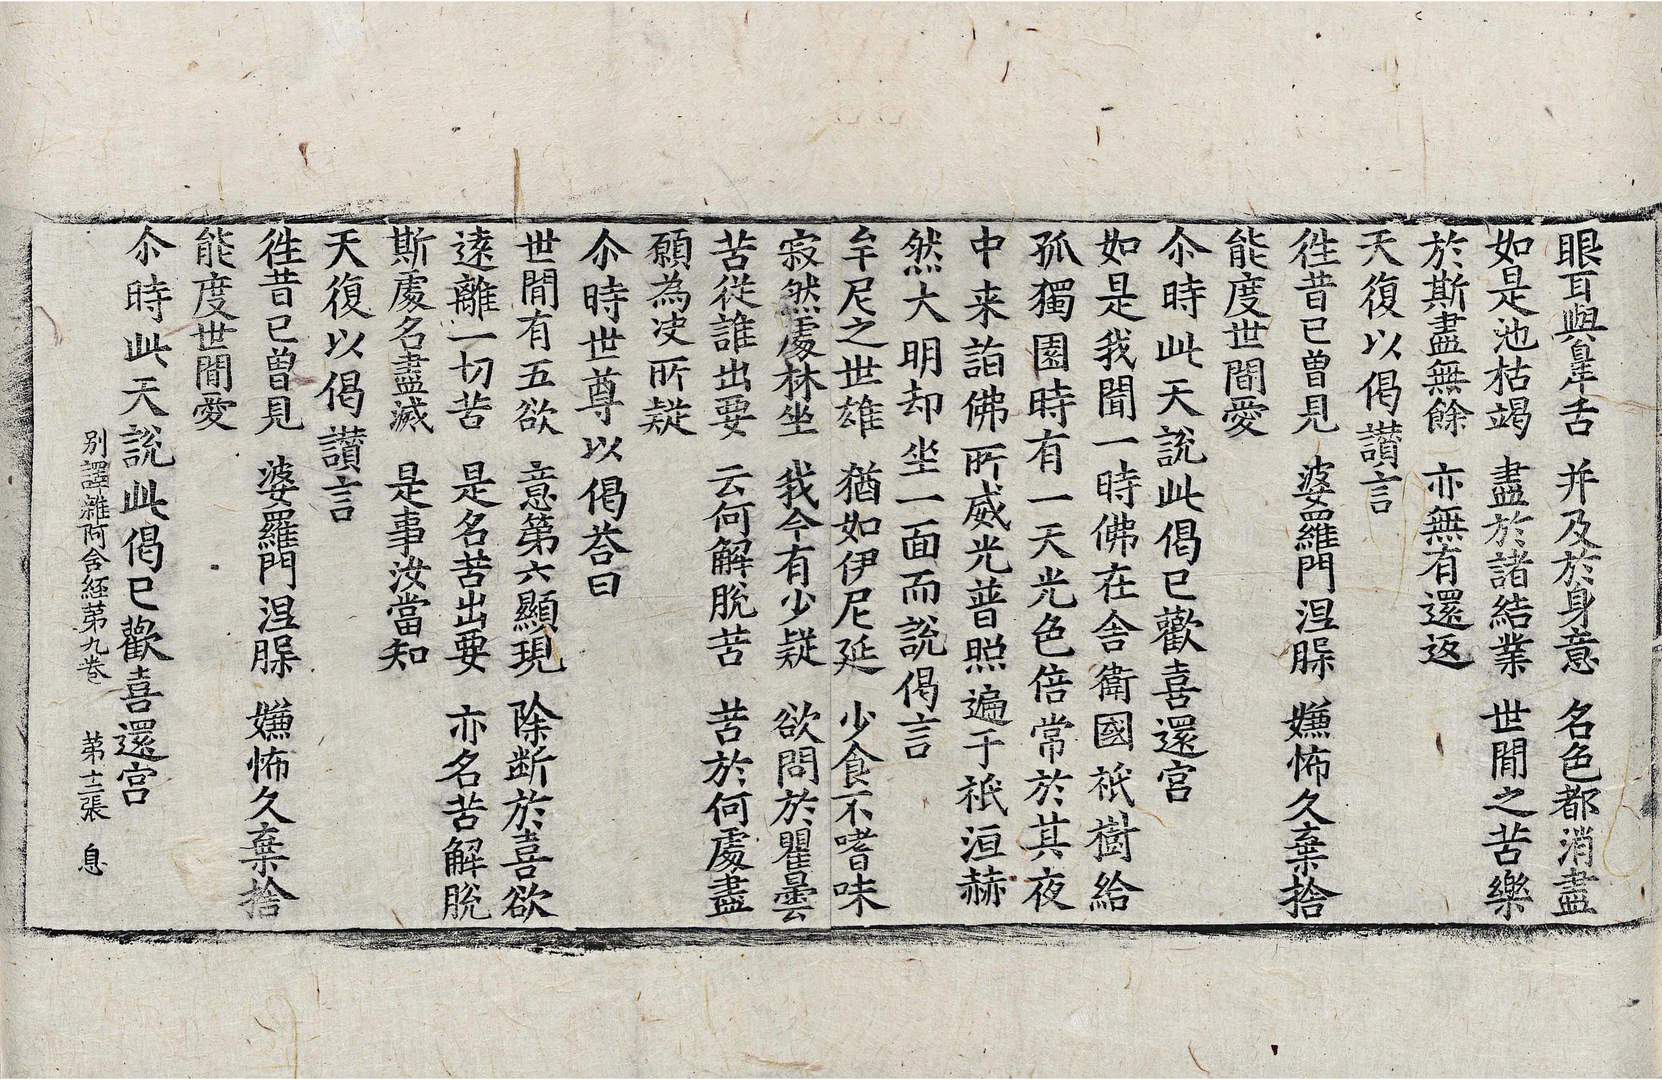 眼耳與鼻舌 并及於身意 名色都消盡
如是池枯竭 盡於諸結業 世閒之苦樂
於斯盡無餘 亦無有還返
天復以偈讃言
徃昔已曾見 婆羅門涅槃 嫌怖久棄捨
能度世閒愛
尒時此天說此偈已歡喜還宮
如是我聞一時佛在舎衛國祇樹給
孤獨園時有一天光色倍常於其夜
中来詣佛所威光普照遍于祇洹赫
然大明却坐一面而說偈言
牟尼之世雄 猶如伊尼延 少食不嗜味
寂然處林坐 我今有少疑 欲問於瞿曇
苦從誰出要 云何解脫苦 苦於何處盡
願為决所疑
尒時世尊以偈荅曰
世閒有五欲 意第六顯現 除断於喜欲
遠離一切苦 是名苦出要 亦名苦解脫
斯處名盡滅 是事汝當知
天復以偈讃言
徃昔已曾見 婆羅門涅槃 嫌怖久棄捨
能度世閒愛
尒時此天說此偈已歡喜還宮
别譯雜阿含經第九卷 第十二張 息